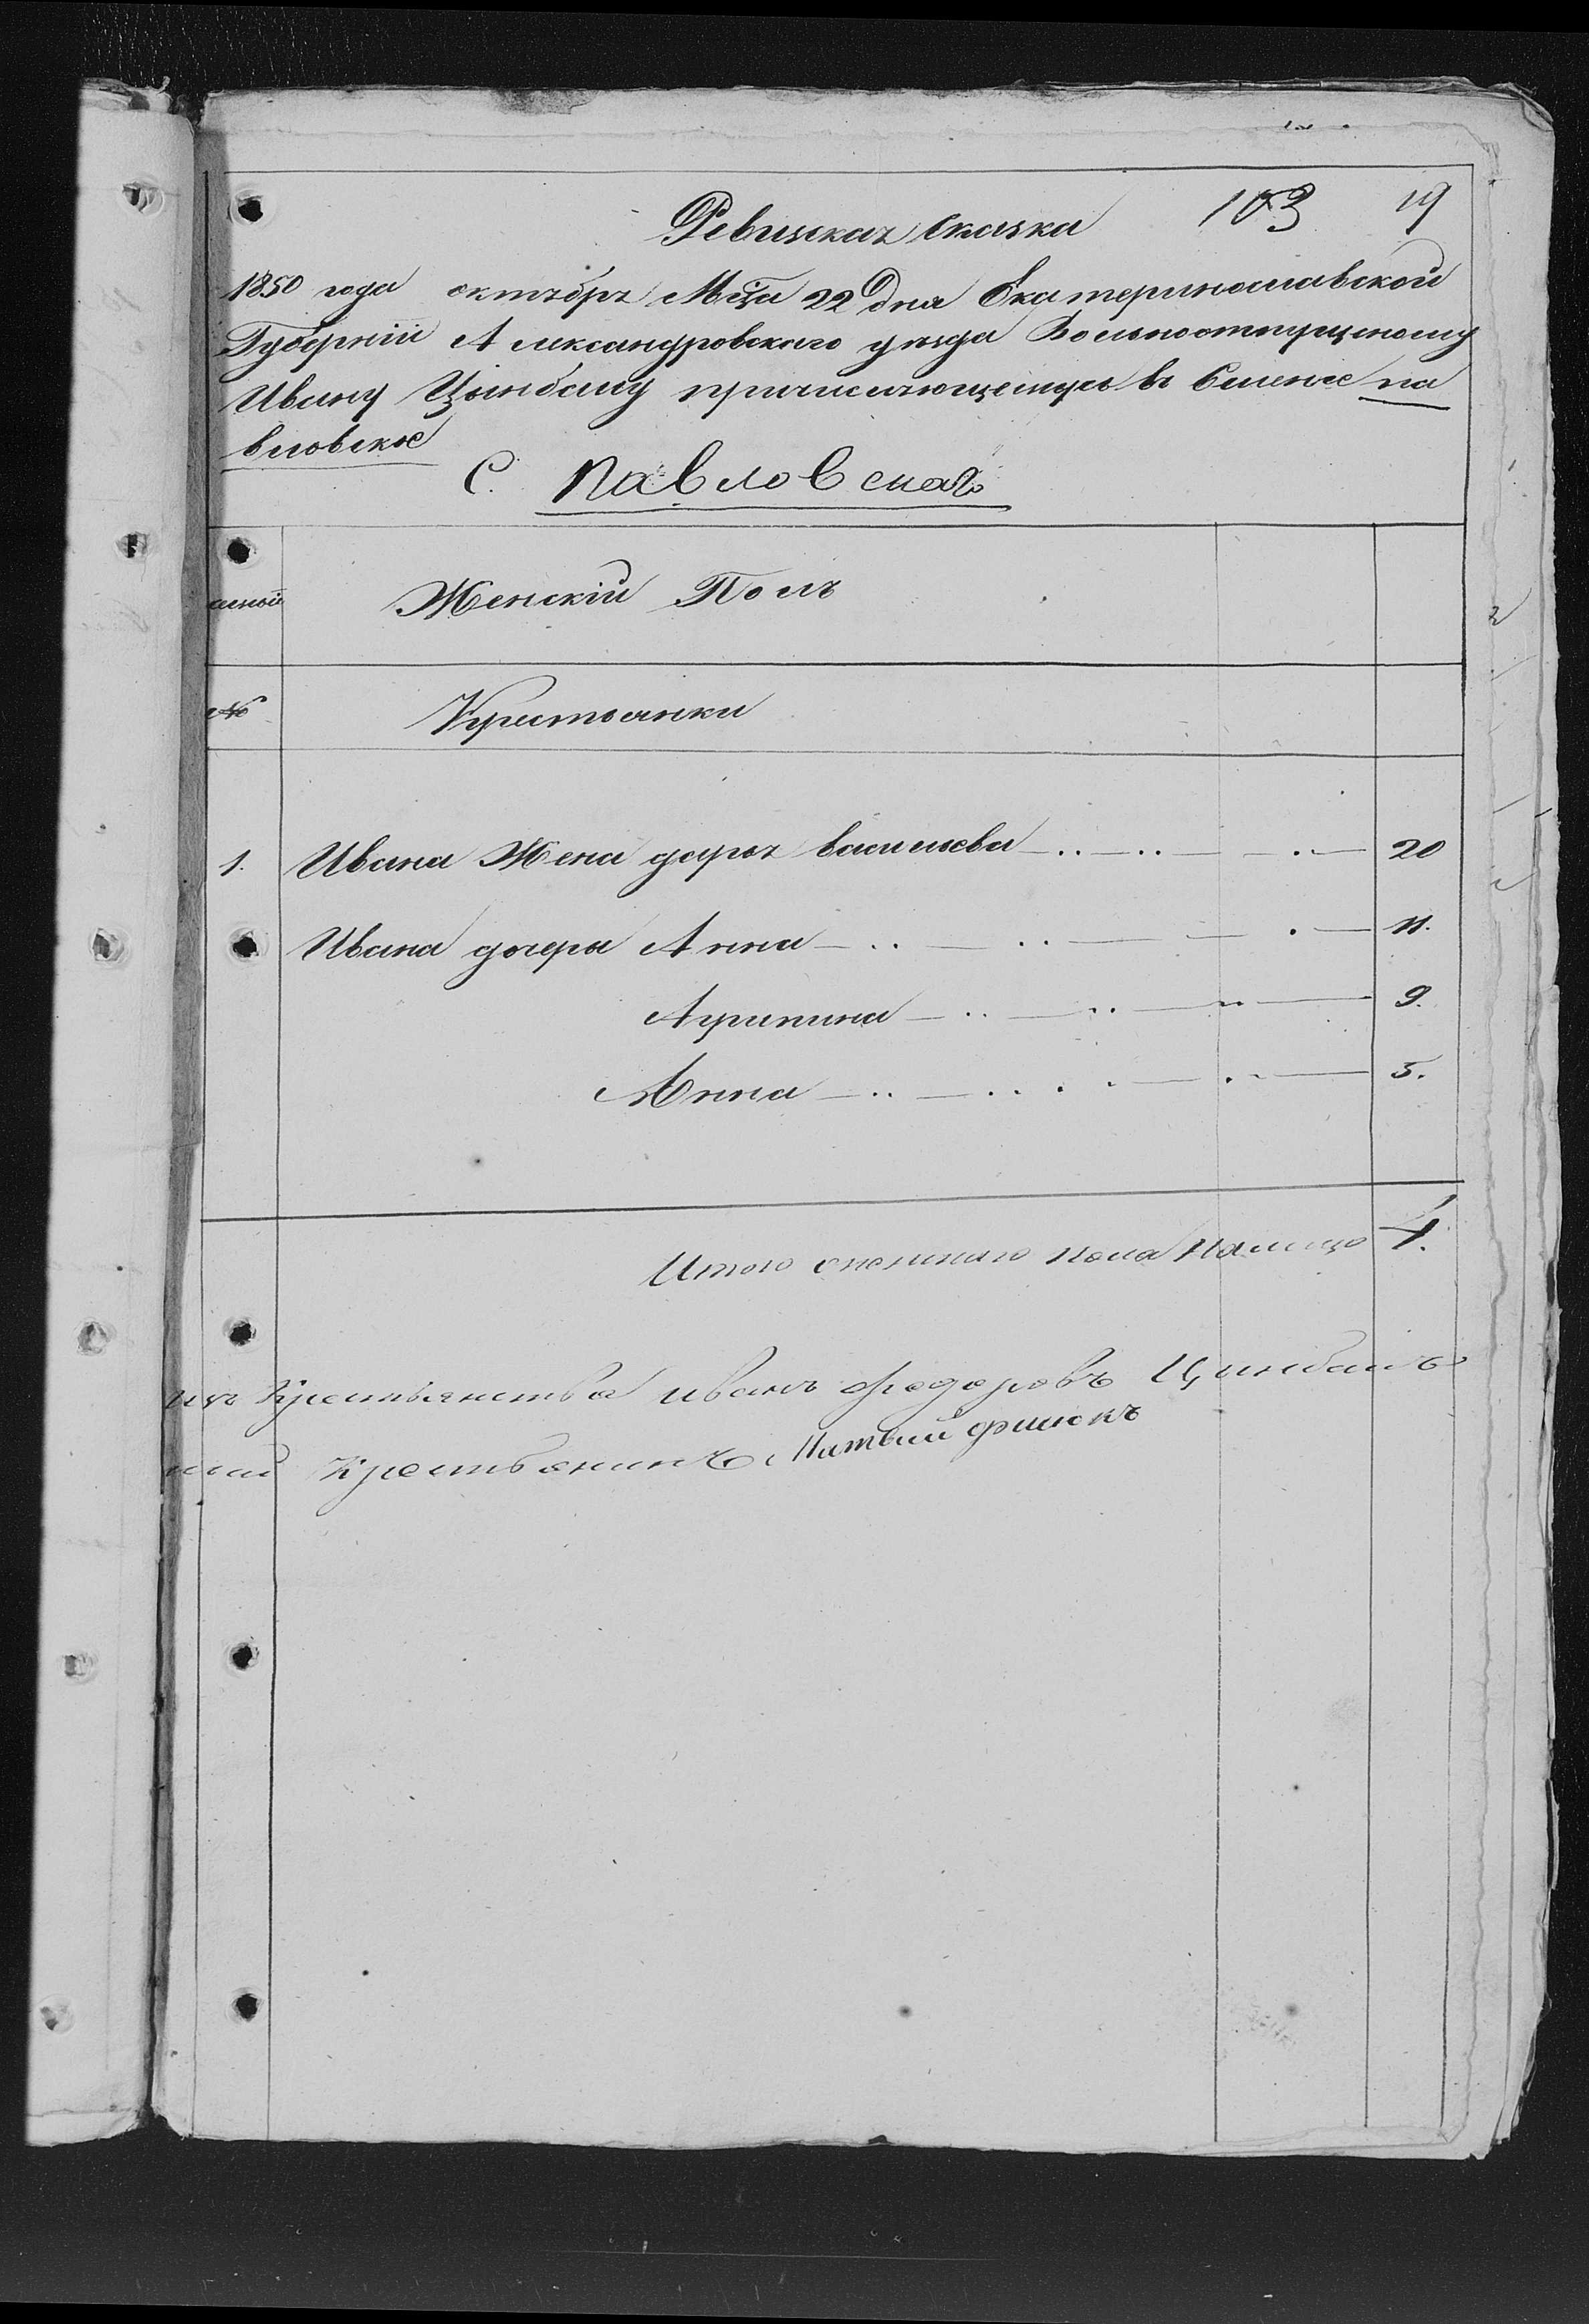 103 19
Ревизская сказка
1850 года октября Мца 22 дня Екатеринославской
Губерніи Александровскаго уезда Вольноотпущеному
Ивану Цымбалу причисляющемуся въ Селение па
вловское
С. Павловская
Женскій Полъ
№ Крестьянки
1. Ивана Жена дарья васильева 20
Ивана дочеры Анна 11.
Агрипина 9.
Анна 5.
Итого женскаго пола налицо 4.
изъ Крестьянства иванъ федоровъ Цимбалъ
Крестьянинъ Матвий